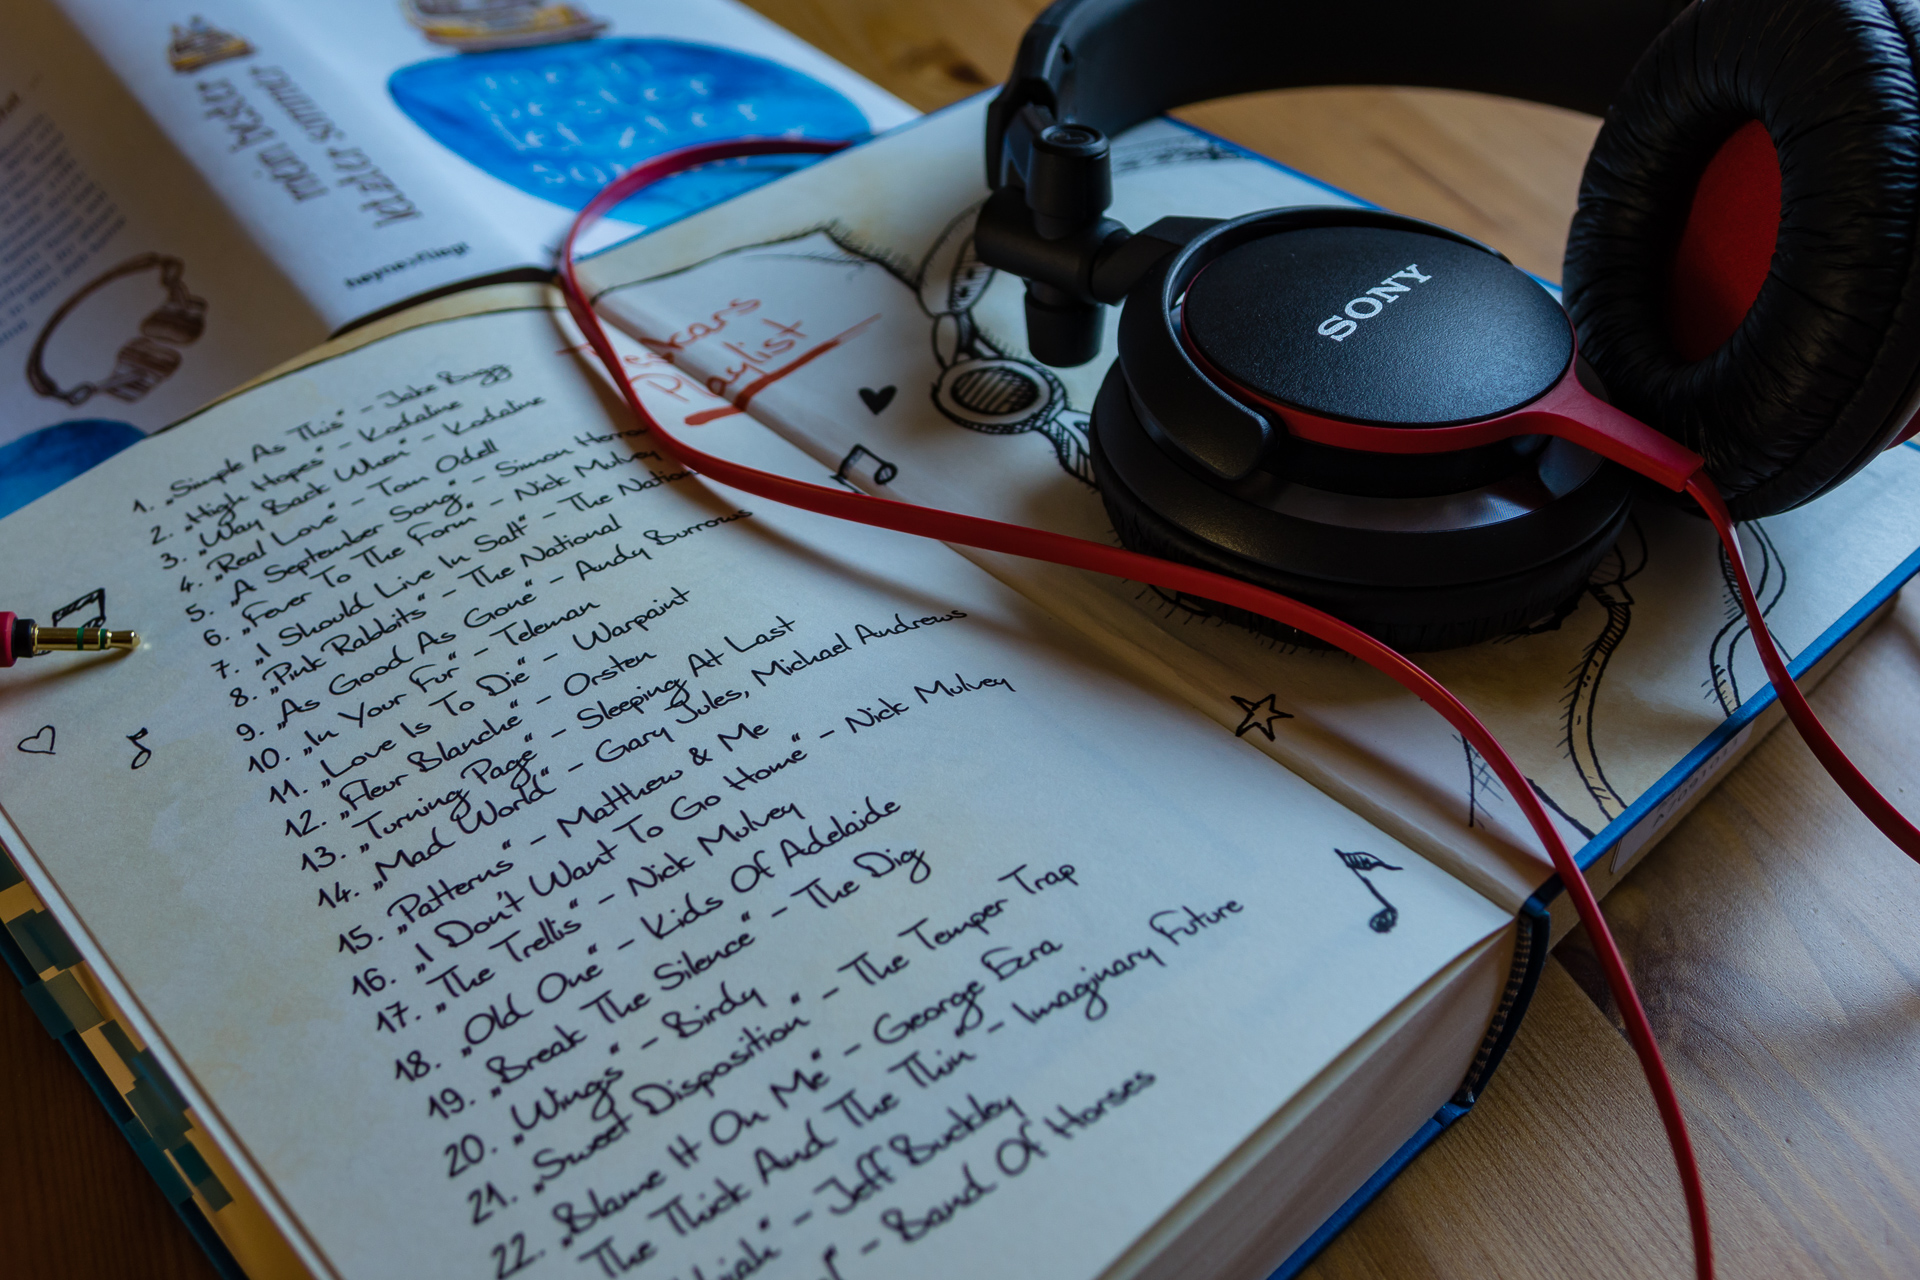 mein bester
letzter sommer
heyne›fliegt
SONY
Playlist
1. „Simple As This“ – Jake Bugg
2. „High Hopes“ – Kodaline
3. „Way Back When“ – Kodaline
4. „Real Love“ – Tom Odell
5. „A September Song“ – Simon
6. „Fever To The Form“ – Nick Mulvey
7. „I Should Live In Salt“ – The National
8. „Pink Rabbits“ – The National
9. „As Good As Gone“ – Andy Burrows
10. „In Your Fur“ – Teleman
11. „Love Is To Die“ – Warpaint
12. „Fleur Blanche“ – Orsten
13. „Turning Page“ – Sleeping At Last
14. „Mad World“ – Gary Jules, Michael Andrews
15. „Patterns“ – Matthew & Me
16. „I Don't Want To Go Home“ – Nick Mulvey
17. „The Trellis“ – Nick Mulvey
18. „Old One“ – Kids Of Adelaide
19. „Break The Silence“ – The Dig
20. „Wings“ – Birdy
21. „Sweet Disposition“ – The Temper Trap
22. „Blame It On Me“ – George Ezra
The Thick And The Thin“ – Imaginary Future
“ – Jeff Buckley
“ – Band Of Horses